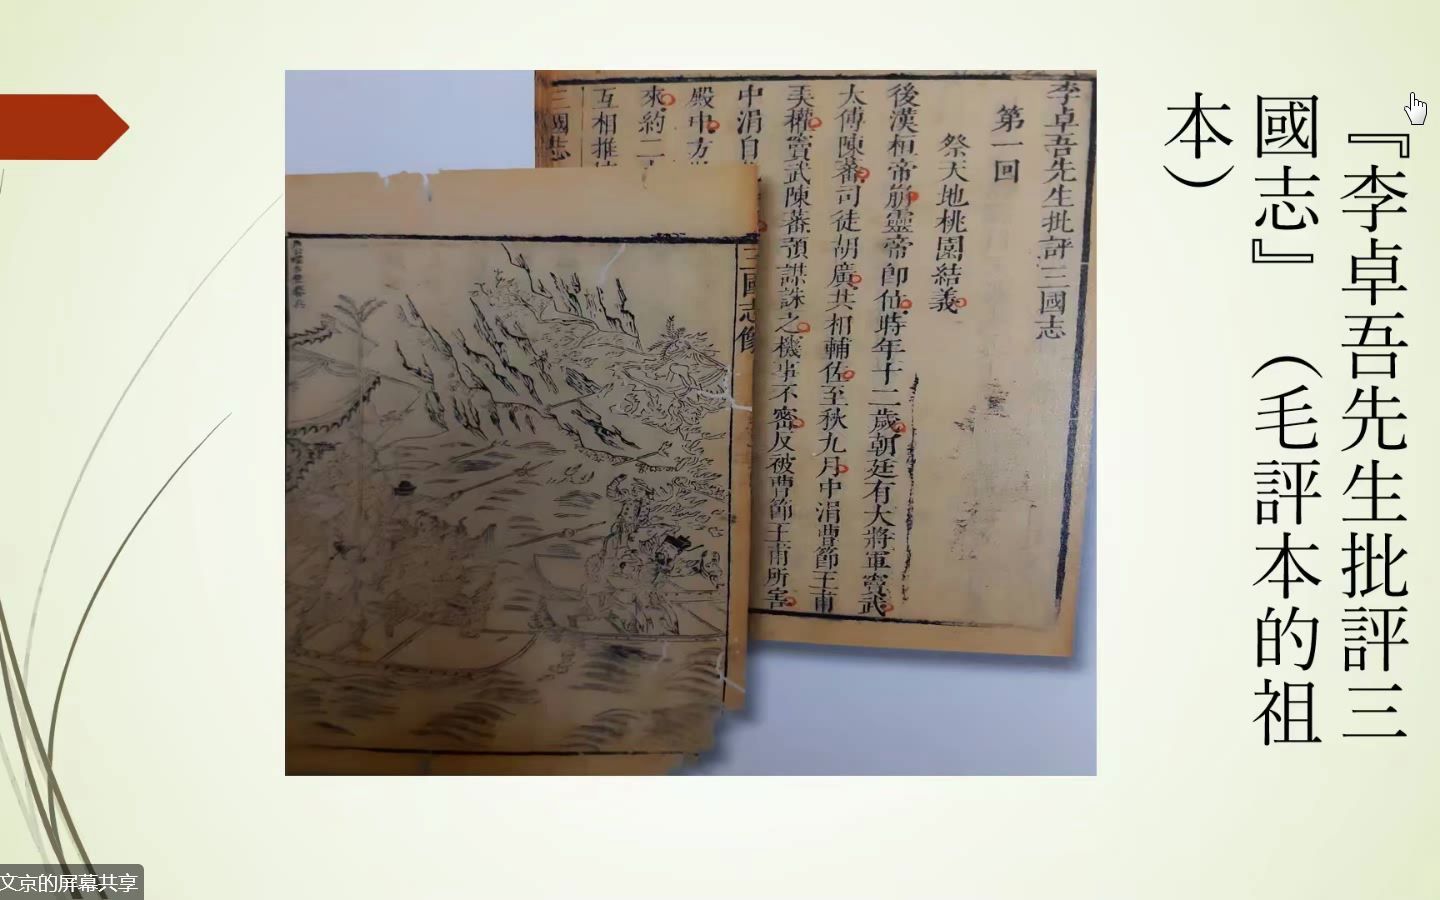 『李卓吾先生批評三
國志』（毛評本的祖
本）
李卓吾先生批評三國志
第一回
祭天地桃園結義
後漢桓帝崩靈帝即位時年十二歲朝廷有大將軍竇武
太傅陳蕃司徒胡廣共相輔佐至秋九月中涓曹節王甫
美權竇武陳蕃預謀誅之機事不密反被曹節王甫所害
中涓自
殿中方
來約二
互相推
三國志
三國志像
文京的屏幕共享